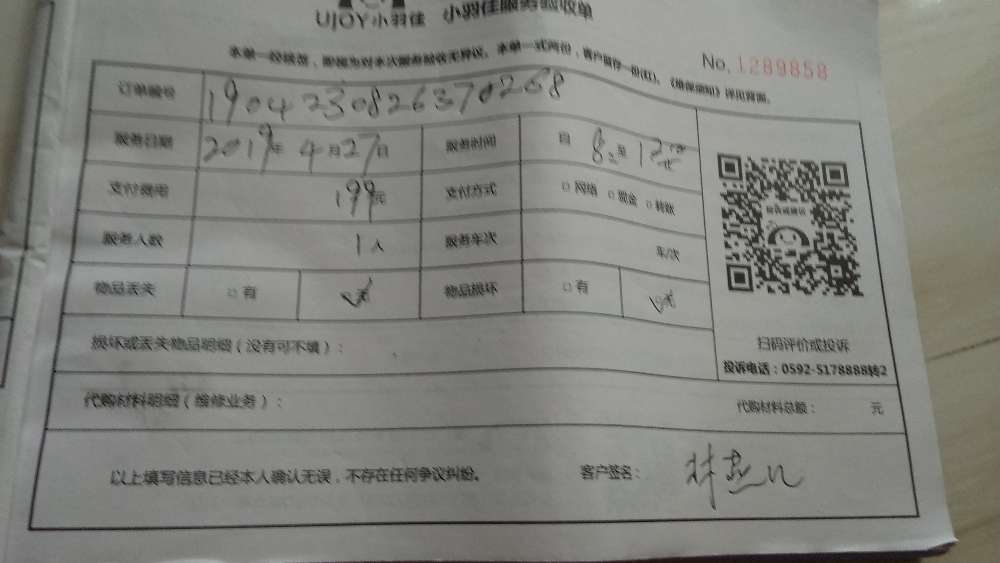 UJOY小羽佳 小羽佳服务验收单
本单一经核签，即视为对本次服务验收无异议。本单一式两份，客户留存一份(红)。《维保须知》详见背面。
No. 1289858
订单编号 1904230826370268
服务日期 2019年 4月27日 服务时间 自 8 至 12
支付费用 199元 支付方式 □ 网络 □ 现金 □ 转账
服务人数 1人 服务车次 车/次
物品丢失 □ 有 无 物品损坏 □ 有 无
损坏或丢失物品明细（没有可不填）：
扫码评价或投诉
投诉电话：0592-5178888转2
代购材料明细（维修业务）： 代购材料总额： 元
以上填写信息已经本人确认无误，不存在任何争议纠纷。 客户签名：